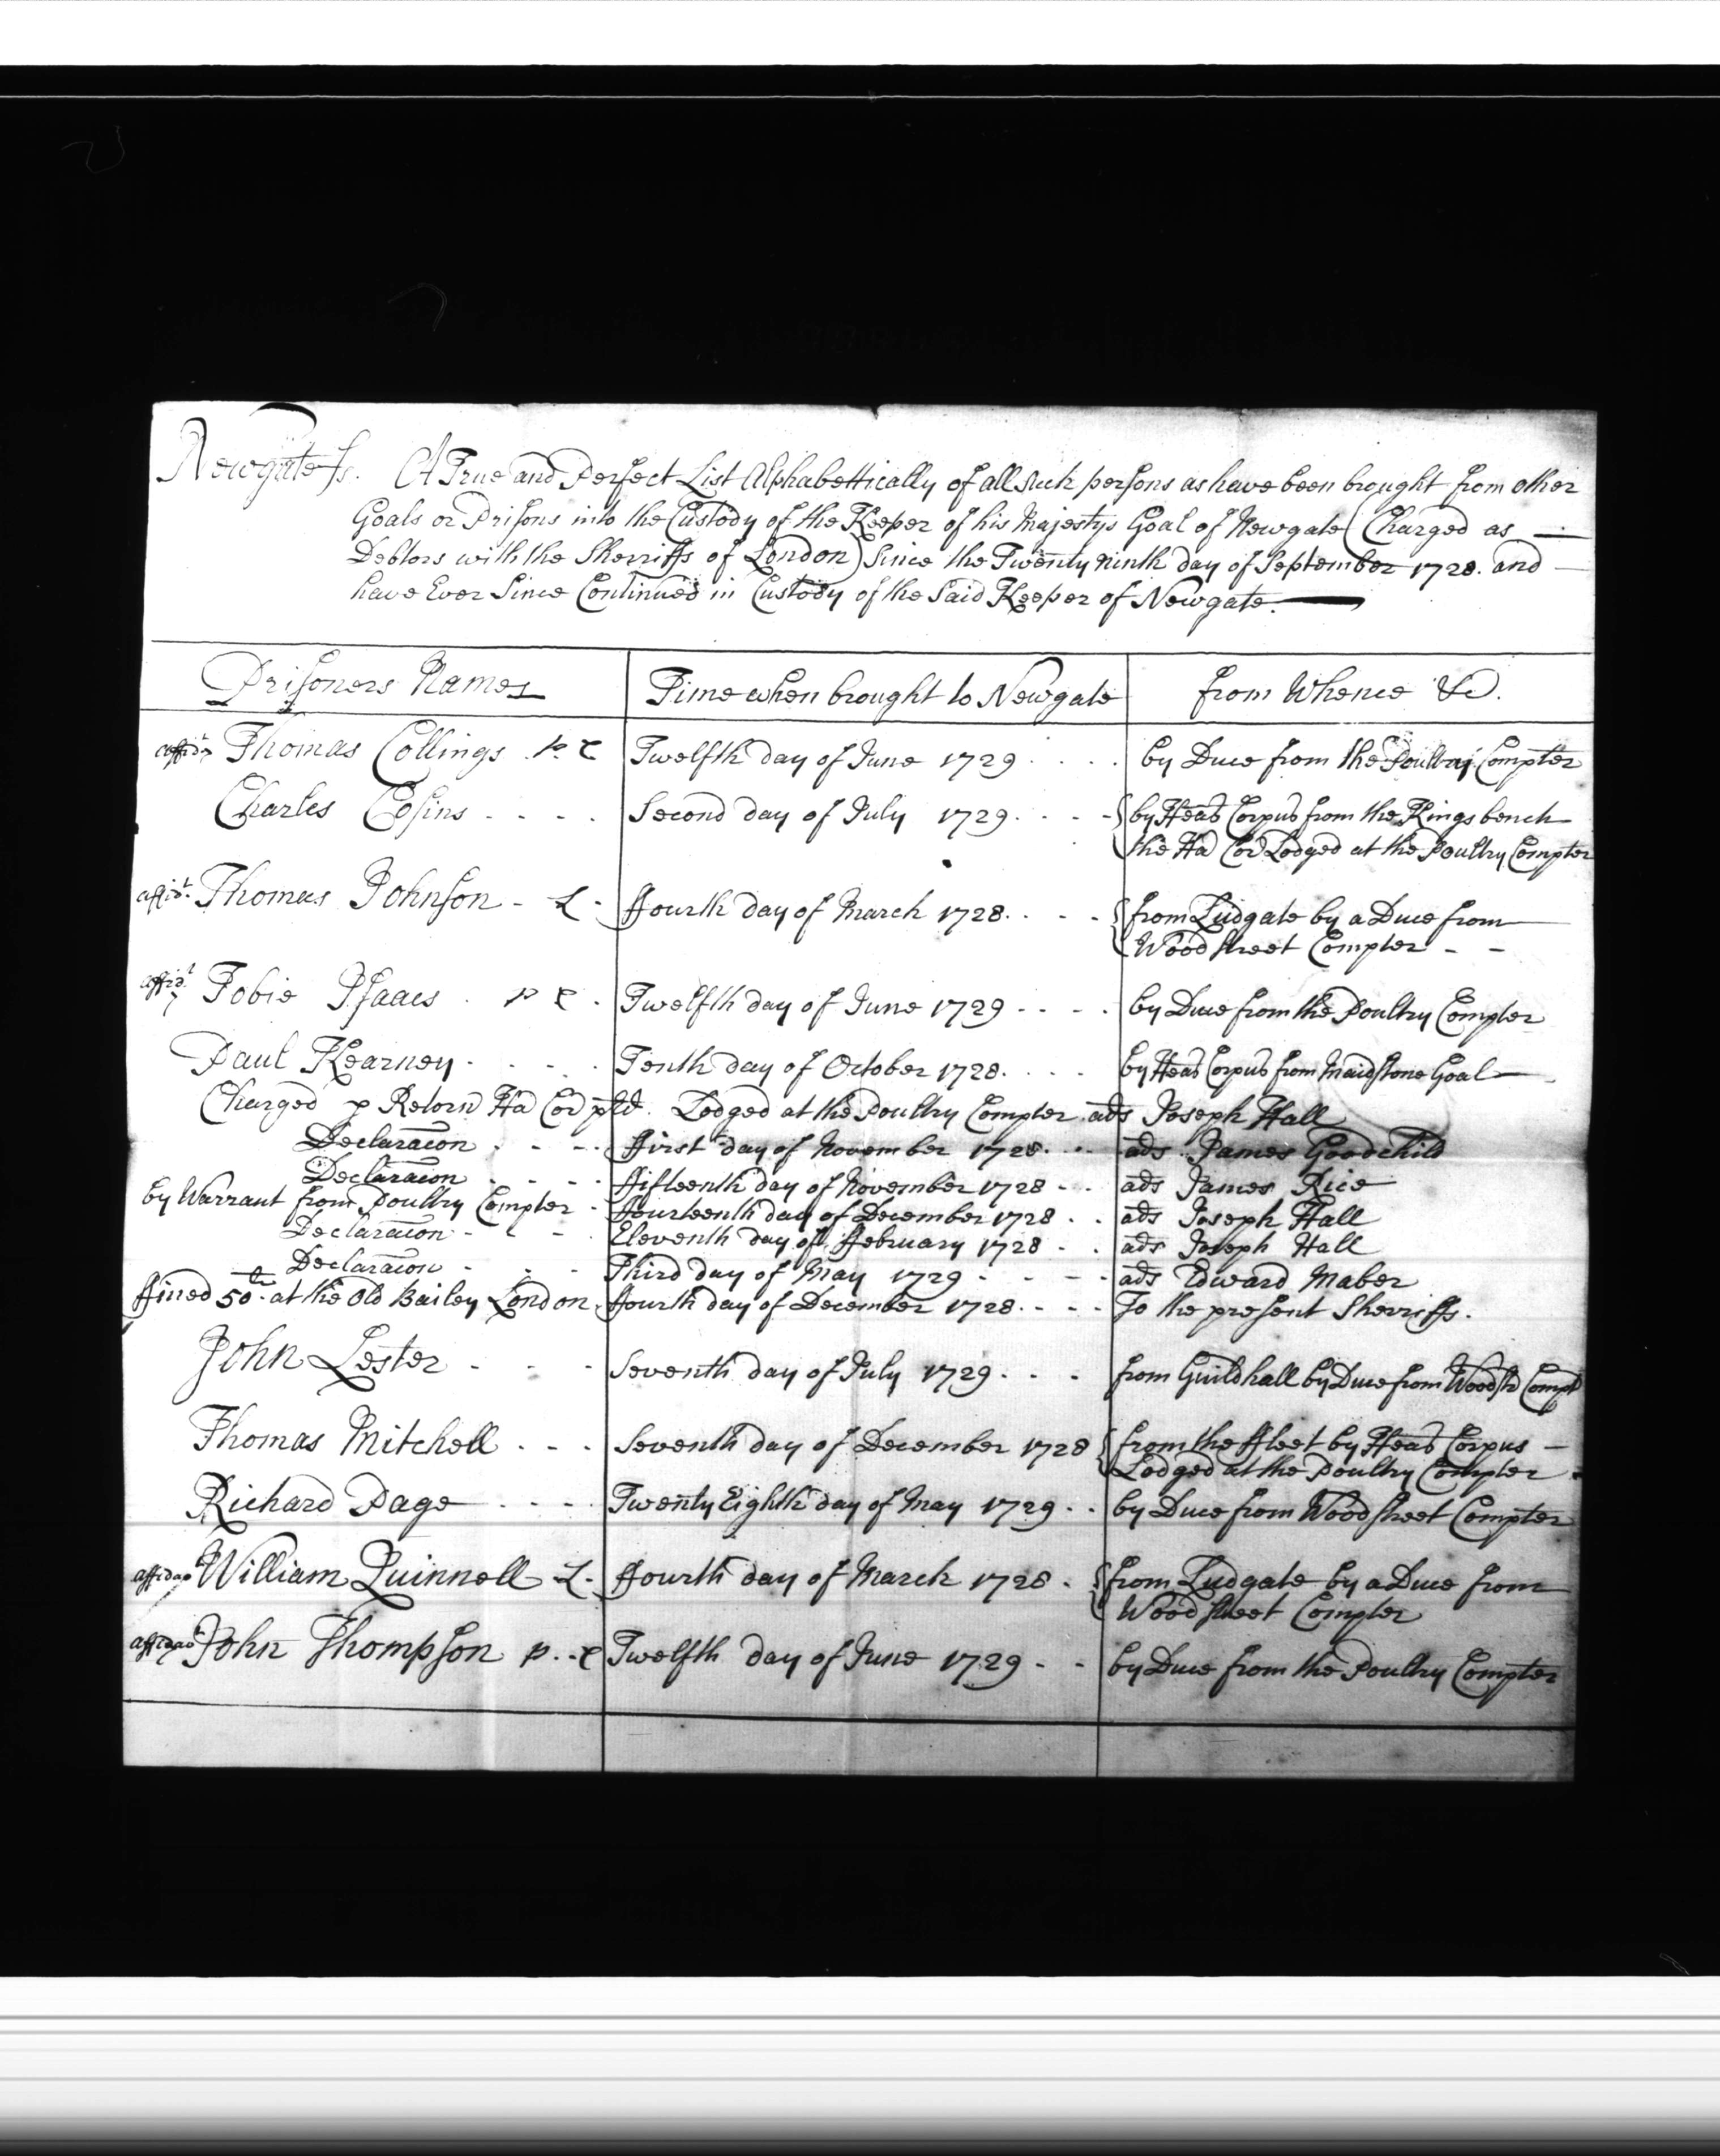 Newgate fs. A True and Perfect List Alphabettically of all such persons as have been brought from other
Goals or Prisons into the Custody of the Keeper of his Majestys Goal of Newgate (Charged as —
Debtors with the Sherriffs of London) Since the Twenty ninth day of September 1728. and —
have Ever Since Continued in Custody of the Said Keeper of Newgate. —
Prisoners Names Time when brought to Newgate from Whence &c.
affidt Thomas Collings P. C Twelfth day of June 1729 . . . . by Duce from the Poultry Compter
Charles Cosins - - - . Second day of July 1729. - - - by Heab Corpus from the Kings bench
the Ha Cor Lodged at the Poultry Compter
affidt. Thomas Johnson - L - ffourth day of March 1728. . - - from Ludgate by a Duce from
Wood Street Compter - -
affidt Tobie Isaacs . P C . Twelfth day of June 1729 - - - . by Duce from the Poultry Compter
Paul Kearney - . - . . Tenth day of October 1728. . . . by Heab Corpus from Maidstone Goal —
Charged p Retorn Ha Cor Lodged at the Poultry Compter ads Joseph Hall
Declaracon . - - . ffirst day of November 1728. . . ads James Goodchild
Declaracon . - - . ffifteenth day of November 1728 - . . ads James Rice
by Warrant from Poultry Compter - ffourteenth day of December 1728 . . ads Joseph Hall
Declaracon - - - . Eleventh day of ffebruary 1728 - . ads Joseph Hall
Declaracon - . - Third day of May 1729 - - - - ads Edward Maber
ffined 50l. at the Old Bailey London ffourth day of December 1728. - - . To the present Sherriffs.
John Lester - - - Seventh day of July 1729 . . . from Guildhall by Duce from Woodst Compt
Thomas Mitchell . - . Seventh day of December 1728 from the ffleet by Heab Corpus —
Lodged at the Poultry Compter
Richard Page . - - . Twenty Eighth day of May 1729 . . by Duce from Wood street Compter
affidt William Quinnell L. ffourth day of March 1728 . from Ludgate by a Duce from
Wood street Compter
affidt John Thompson P. C Twelfth day of June 1729 - - by Duce from the Poultry Compter